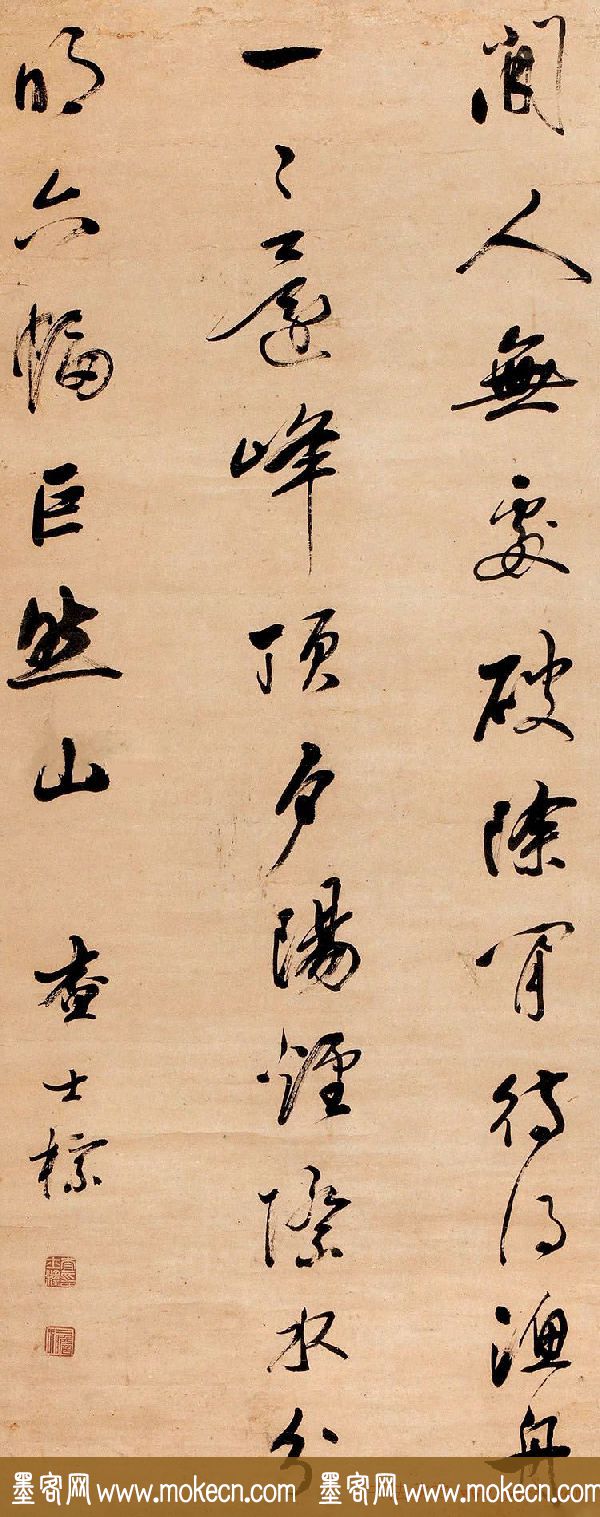 閒人無處破除閒待得漁舟
一〻還峰頂夕陽煙際水分
明六幅巨然山
查士標
墨客网www.mokecn.com 墨客网www.mokecn.com